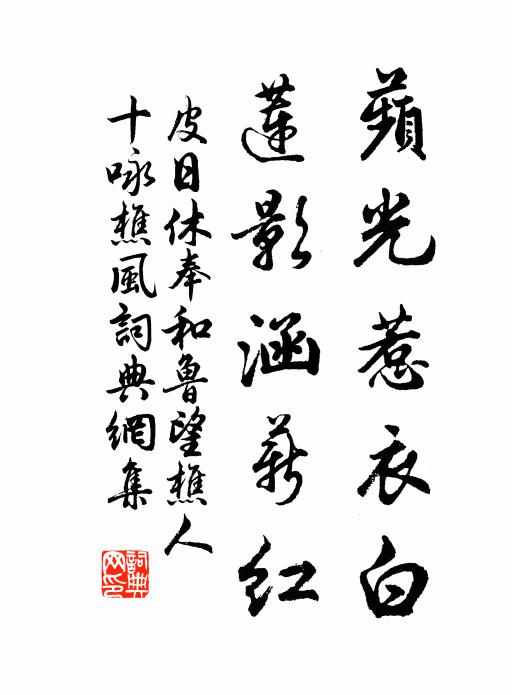 蘋光惹衣白
蓮影涵薪紅
皮日休奉和魯望樵人
十咏樵風詞典網集
詞典
网印